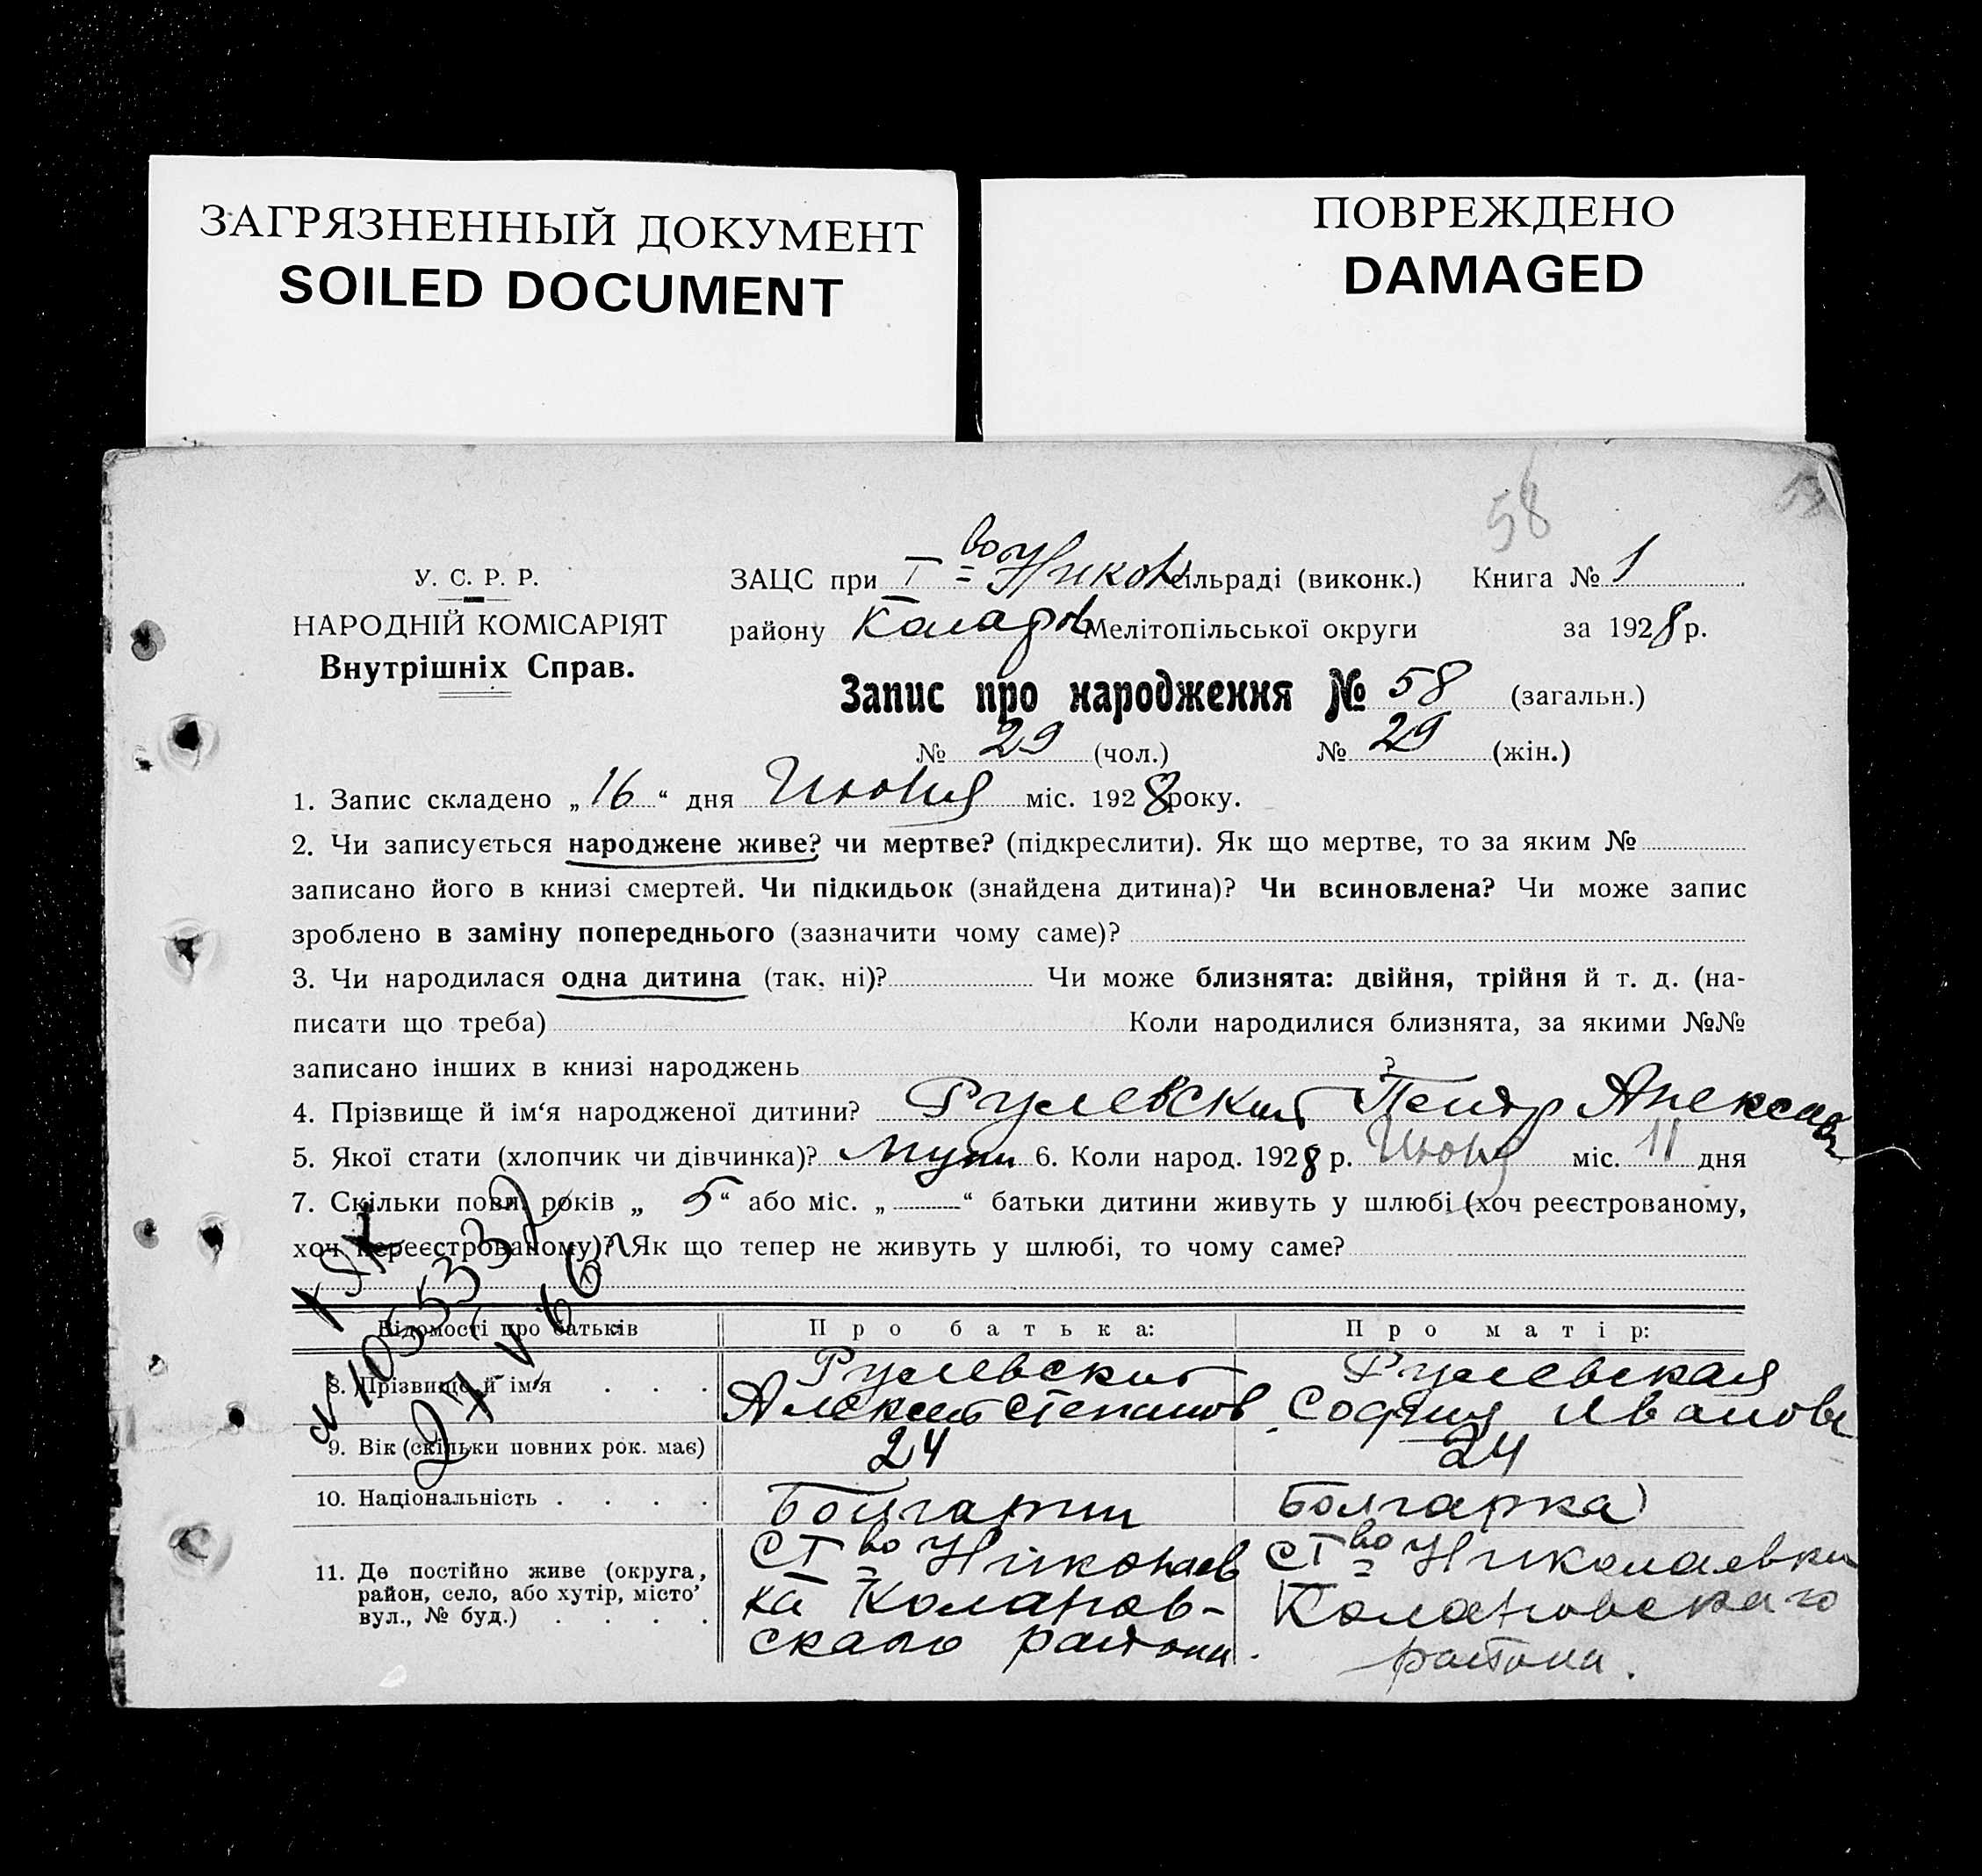 ЗАГРЯЗНЕННЫЙ ДОКУМЕНТ
SOILED DOCUMENT
ПОВРЕЖДЕНО
DAMAGED
58
У. С. Р. Р.
НАРОДНІЙ КОМІСАРІЯТ
Внутрішніх Справ.
ЗАЦС при I во Никол сільраді (виконк.) Книга № 1
району Колатов Мелітопільської округи за 1928 р.
Запис про народження № 58 (загальн.)
№ 29 (чол.) № 29 (жін.)
1. Запис складено „16“ дня Июня міс. 1928 року.
2. Чи записується народжене живе? чи мертве? (підкреслити). Як що мертве, то за яким №
записано його в книзі смертей. Чи підкидьок (знайдена дитина)? Чи всиновлена? Чи може запис
зроблено в заміну попереднього (зазначити чому саме)?
3. Чи народилася одна дитина (так, ні)? Чи може близнята: двійня, трійня й т. д. (на-
писати що треба) Коли народилися близнята, за якими №№
записано інших в книзі народжень ?
4. Прізвище й ім‘я народженої дитини? Рулевский Петр Алексеев
5. Якої стати (хлопчик чи дівчинка)? Мужк 6. Коли народ. 1928 р. Июня міс. 11 дня
7. Скільки повн. років „5“ або міс. „ “ батьки дитини живуть у шлюбі (хоч реєстрованому,
хоч нереєстрованому)? Як що тепер не живуть у шлюбі, то чому саме?
Відомості про батьків Про батька: Про матір:
8. Прізвище й ім‘я Рулевский Рулевская
Алексей Степанов София Иванов
9. Вік (скільки повних рок. має) 24 24
10. Національність Болгарин Болгарка
11. Де постійно живе (округа, район, село, або хутір, місто, вул., № буд.)
С I во Николаев
ка Коларов-
скаго района.
С I во Николаевки
Коларовскаго
района.